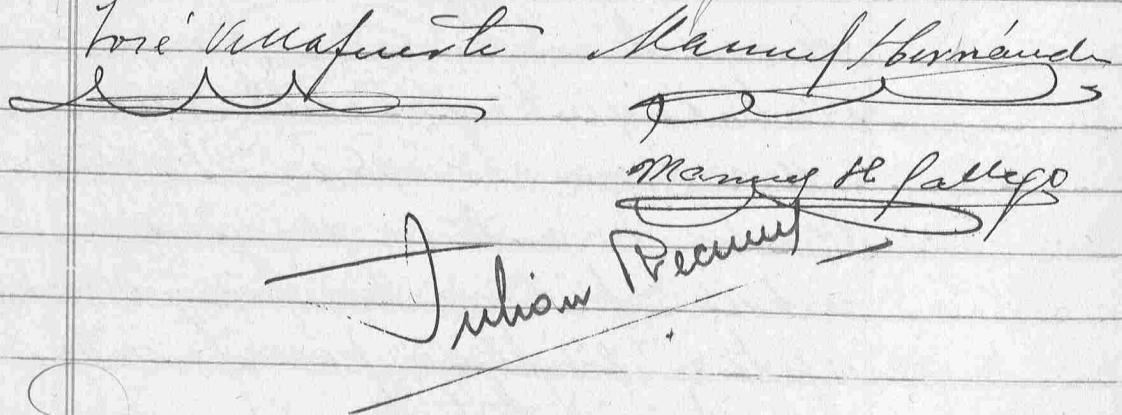 José Villafuerte Manuel Hernández
Manuel H Gallego
Julian